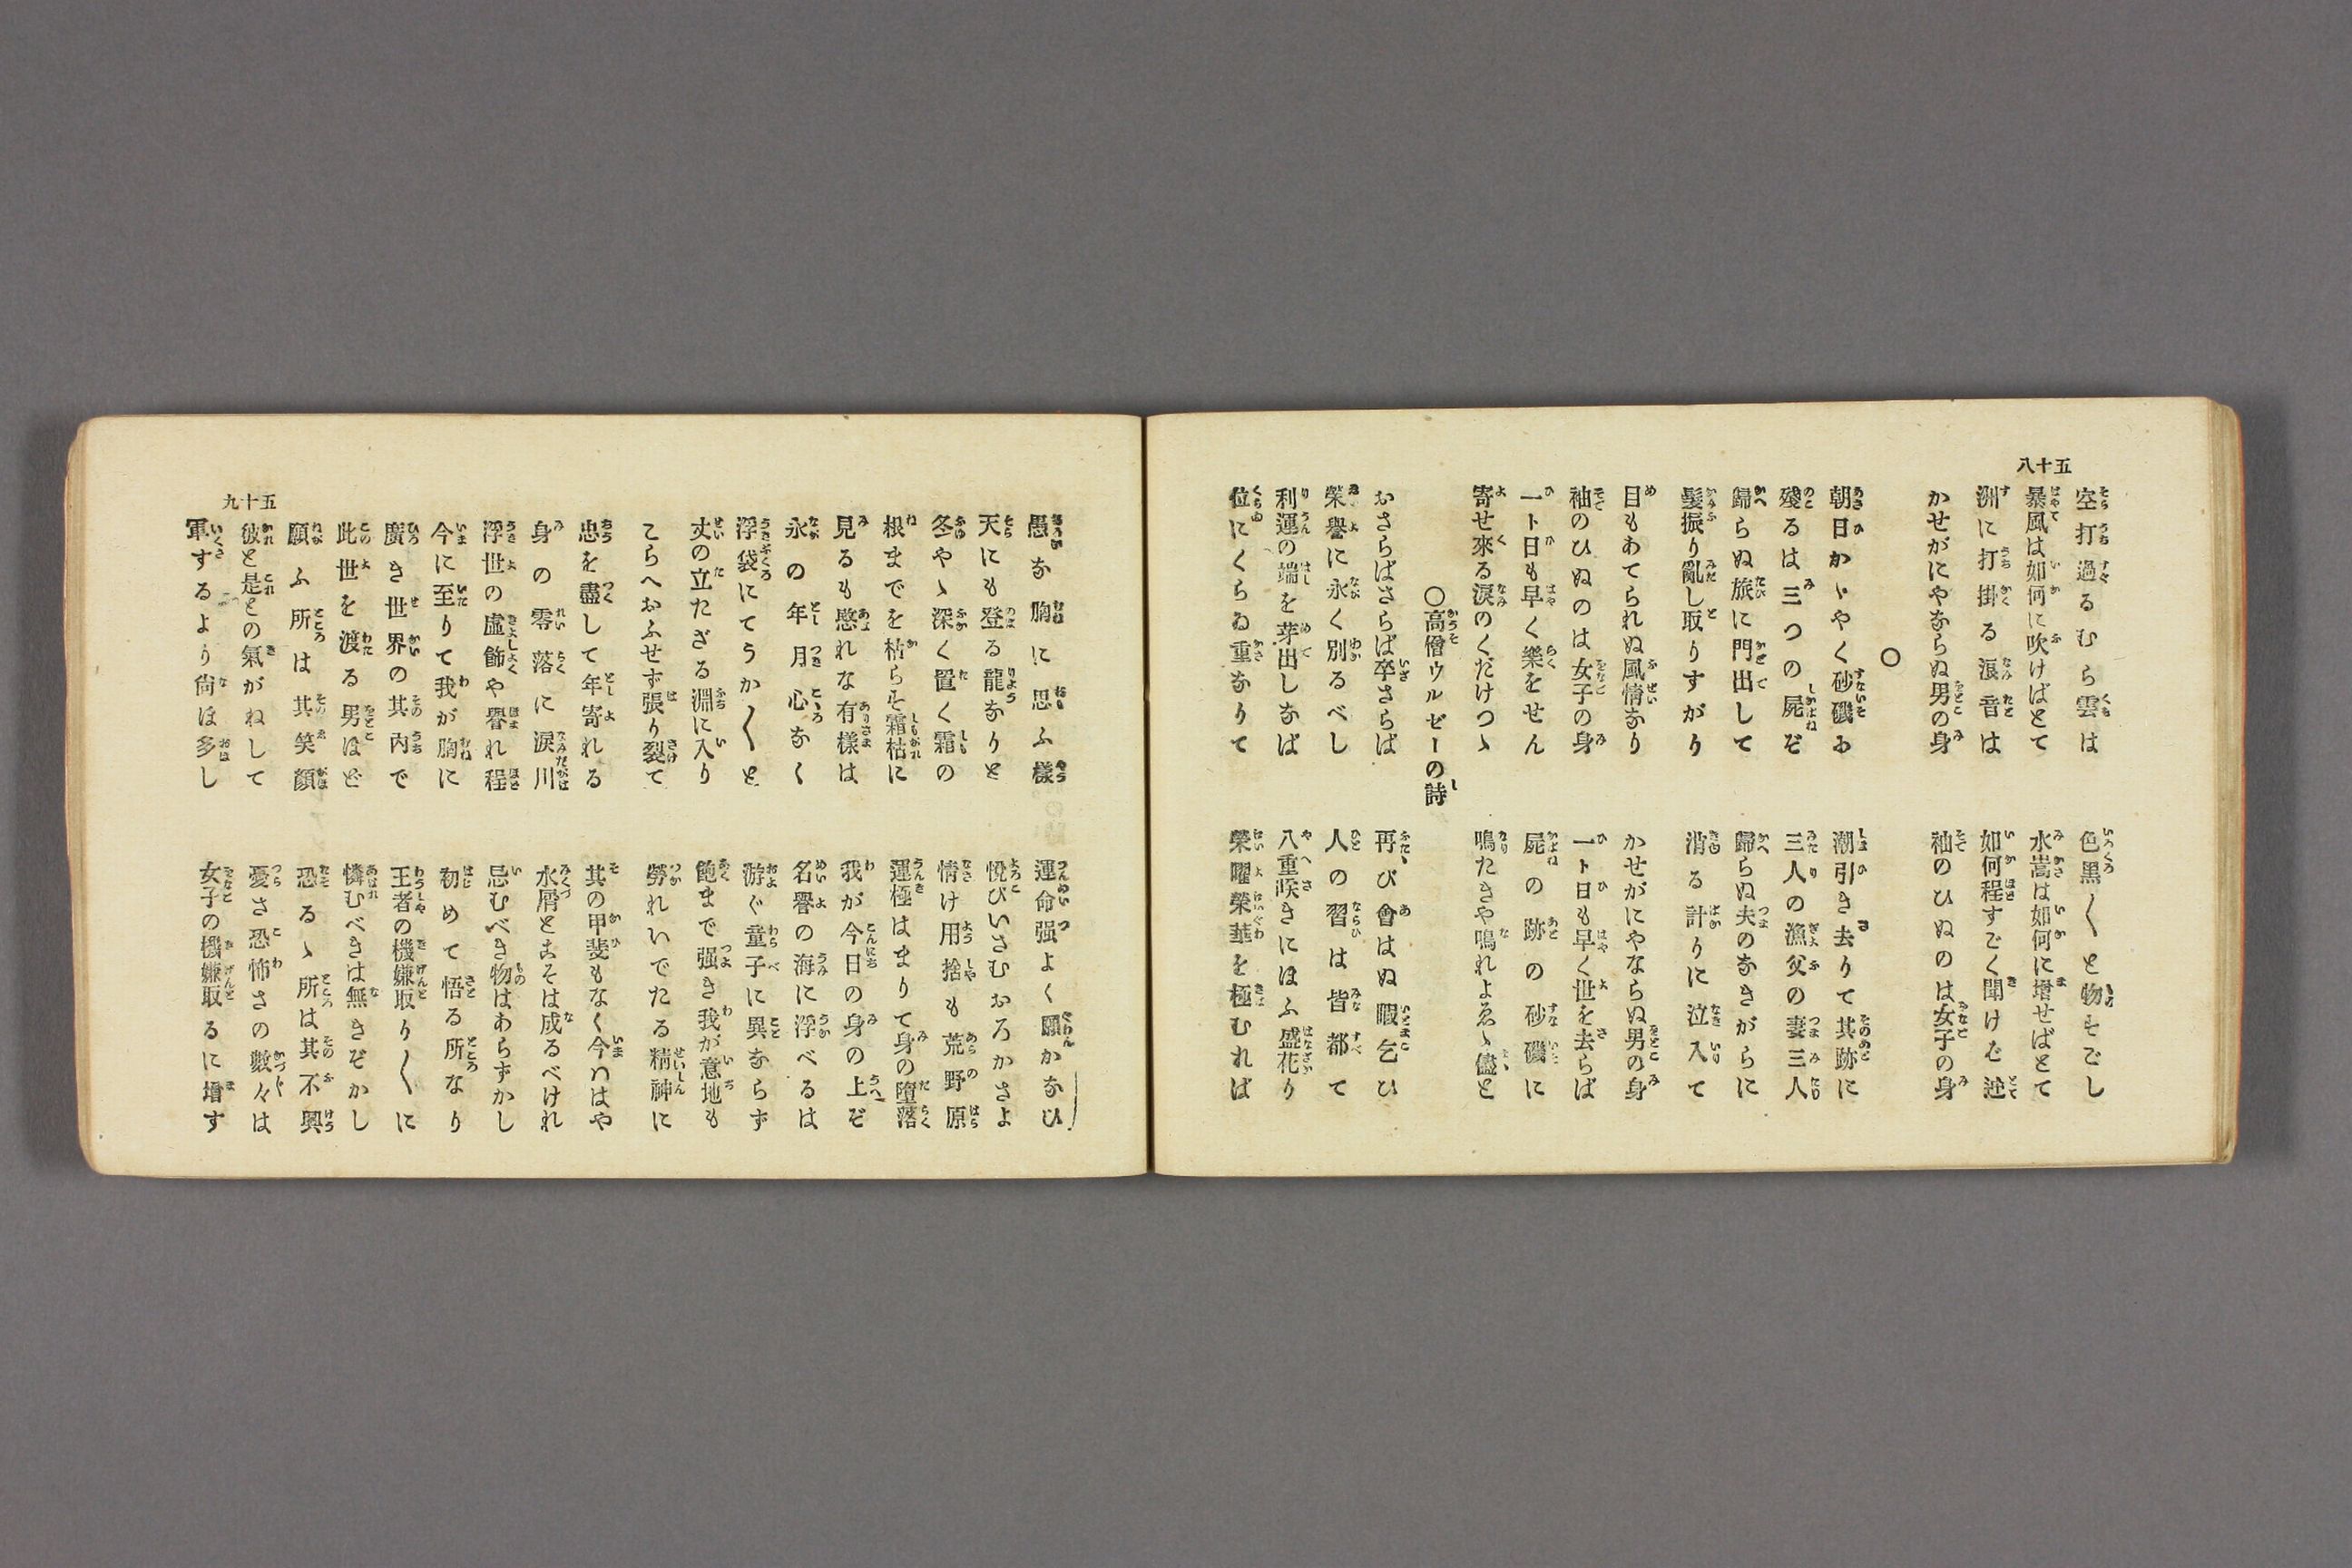 五十八
空打過るむら雲は　色黒〱と物すごし
暴風は如何に吹けばとて　水嵩は如何に増せばとて
洲に打掛る浪音は　如何程すごく聞けど迚
かせがにやならぬ男の身　袖のひぬのは女子の身
○
朝日かゝやく砂磯に　潮引き去りて其跡に
殘るは三つの屍ぞ　三人の漁父の妻三人
歸らぬ旅に門出して　歸らぬ夫のなきがらに
髮振り亂し取りすがり　消る計りに泣入て
目もあてられぬ風情なり　かせがにやならぬ男の身
袖のひぬのは女子の身　一ト日も早く世を去らば
一ト日も早く樂をせん　屍の跡の砂磯に
寄せ來る浪のくだけつゝ　鳴たきや鳴れよゑゝ儘と
○高僧ウルゼーの詩
おさらばさらば卒さらば　再び會はぬ暇乞ひ
榮譽に永く別るべし　人の習は皆都て
利運の端を芽出しなば　八重咲きにほふ盛花り
位にくらゐ重なりて　榮曜榮華を極むれば
愚な胸に思ふ樣　運命强よく願かなひ
天にも登る龍なりと　悅びいさむおろかさよ
冬やゝ深く置く霜の　情け用捨も荒野原
根までを枯らす霜枯に　運極はまりて身の墮落
見るも愍れな有樣は　我が今日の身の上ぞ
永の年月心なく　名譽の海に浮べるは
浮袋にてうか〱と　游ぐ童子に異ならず
丈の立たざる淵に入り　飽まで强き我が意地も
こらへおふせず張り裂て　勞れいでたる精神に
忠を盡して年寄れる　其の甲斐もなく今ははや
身の零落に淚川　水屑とこそは成るべけれ
浮世の虛飾や譽れ程　忌むべき物はあらずかし
今に至りて我が胸に　初めて悟る所なり
廣き世界の其內で　王者の機嫌取り〱に
此世を渡る男ほど　憐むべきは無きぞかし
願ふ所は其笑顏　恐るゝ所は其不興
彼と是との氣がねして　憂さ恐怖さの數々は
軍するより尙ほ多し　女子の機嫌取るに增す
五十九